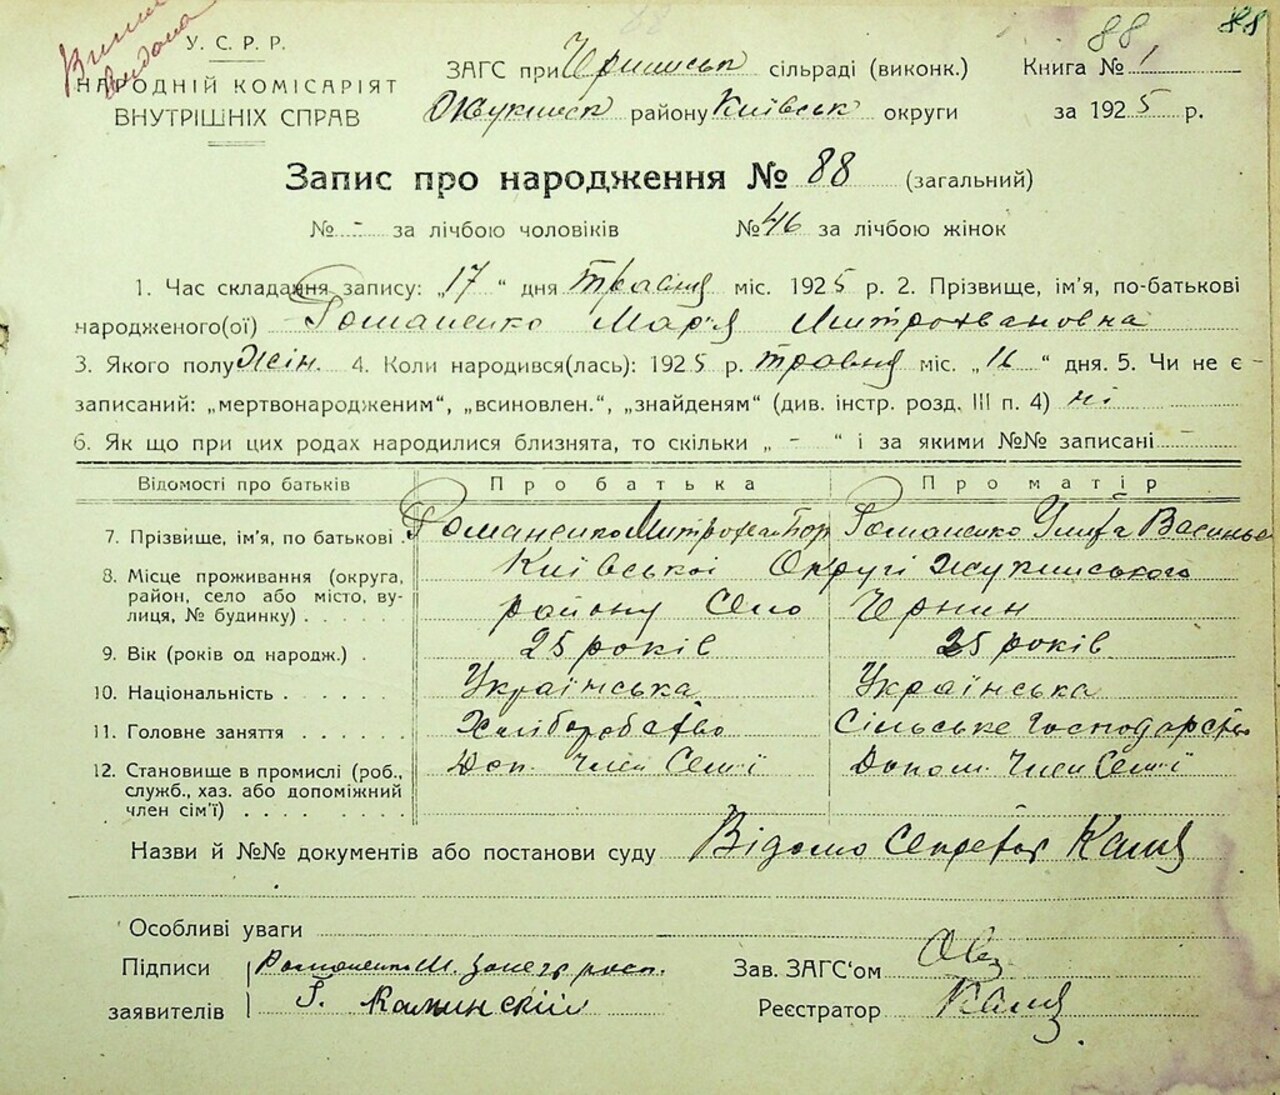 88 88
видана
У. С. Р. Р.
НАРОДНІЙ КОМІСАРІЯТ
ВНУТРІШНІХ СПРАВ
ЗАГС при сільраді (виконк.) Книга № 1
Жукинськ району Київськ округи за 1925 р.
Запис про народження № 88 (загальний)
№ - за лічбою чоловіків № 46 за лічбою жінок
1. Час складання запису: „17“ дня травня міс. 1925 р. 2. Прізвище, ім'я, по-батькові
народженого(ої) Романенко Мар'я Митрофановна
3. Якого полу Жін. 4. Коли народився(лась): 1925 р. травня міс. „16“ дня. 5. Чи не є
записаний: „мертвонародженим“, „всиновлен.“, „знайденям“ (див. інстр. розд. III п. 4) ні
6. Як що при цих родах народилися близнята, то скільки „ - “ і за якими №№ записані -
Відомості про батьків Про батька Про матір
7. Прізвище, ім'я, по батькові Романенко Митрофан Романенко Улита
8. Місце проживання (округа, Київської Округі Жукинського
район, село або місто, ву-
лиця, № будинку) району Село Чернин
9. Вік (років од народж.) 25 років 25 років
10. Національність Українська Українська
11. Головне заняття Хліборобство Сільське Господарство
12. Становище в промислі (роб., Доп. Член Семї Допом. Член Семї
служб., хаз. або допоміжний
член сім'ї)
Назви й №№ документів або постанови суду Відомо Секретар
Особливі уваги
Підписи Романенко М. Зав. ЗАГС'ом
заявителів Г. Каминский Реєстратор